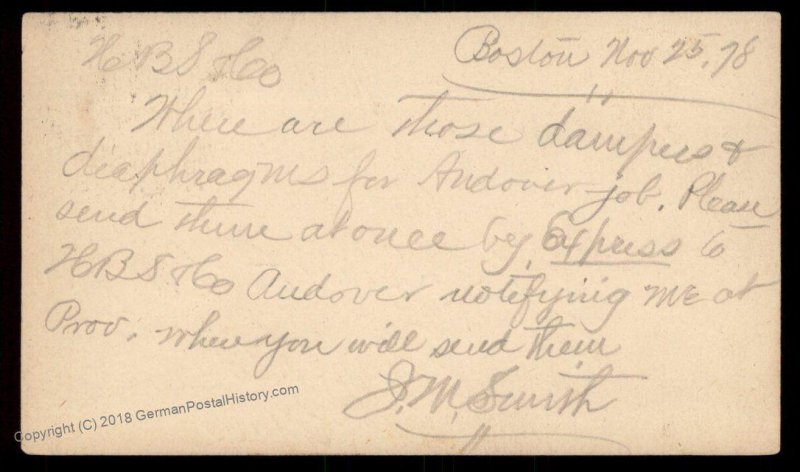 Boston Nov 25, 78
H B S & Co
Where are those dampers &
diaphragms for Andover job. Please
send them at once by express to
H B S & Co Andover notifying me at
Prov. when you will send them
J. M. Smith
Copyright (C) 2018 GermanPostalHistory.com